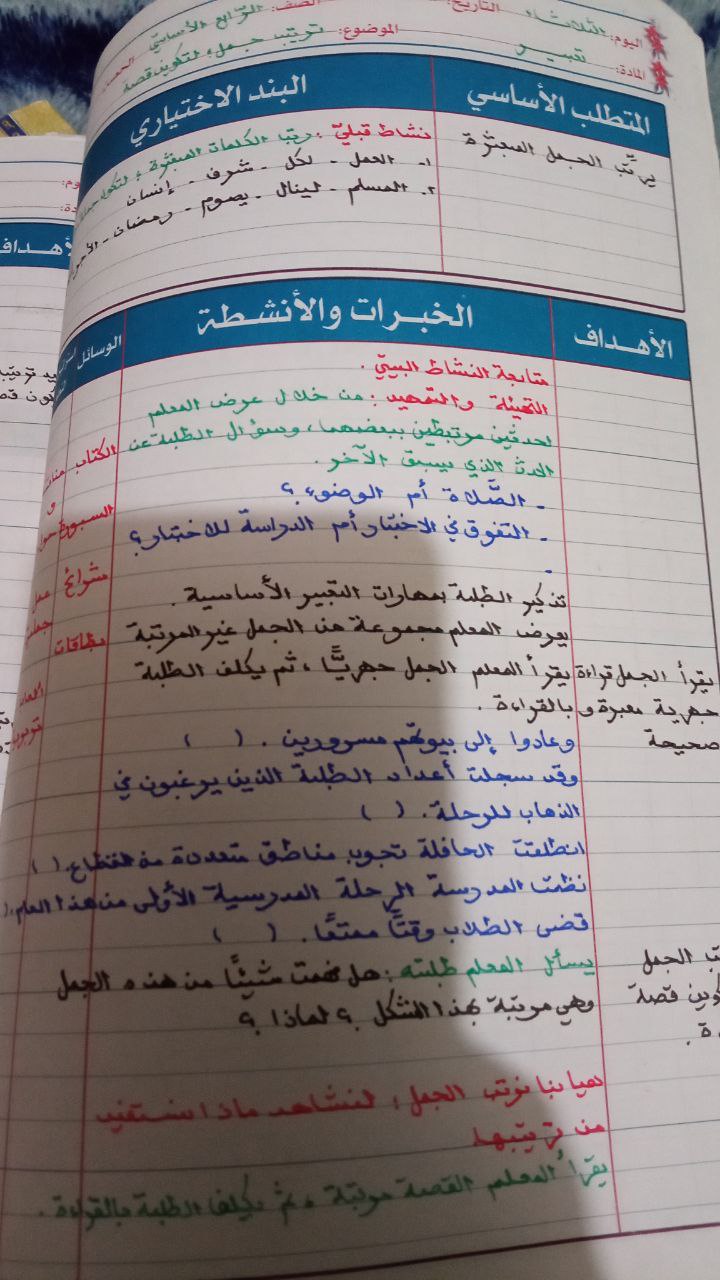 اليوم: الثلاثاء التاريخ: الصف: الرابع الأساسي
المادة: تعبير الموضوع: ترتيب جمل لتكوين قصة
المتطلب الأساسي
البند الاختياري
يرتب الجمل المبعثرة
نشاط قبلي: رتب الكلمات المبعثرة؛
١. العمل - لكل - شرف - إنسان
٢. المسلم - لينال - يصوم - رمضان -
الأهداف
الخبرات والأنشطة
الوسائل
متابعة النشاط البيتي.
التهيئة والتمهيد: من خلال عرض المعلم
لحدثين مرتبطين ببعضهما، وسؤال الطلبة عن
الحدث الذي يسبق الآخر.
- الصَّلاة أم الوضوء؟
- التفوق في الاختبار أم الدراسة للاختبار؟
-
تذكير الطلبة بمهارات التعبير الأساسية.
يعرض المعلم مجموعة من الجمل غير المرتبة
يقرأ المعلم الجمل جهريًّا، ثم يكلف الطلبة
بالقراءة.
وعادوا إلى بيوتهم مسرورين. ( )
وقد سجلت أعداد الطلبة الذين يرغبون في
الذهاب للرحلة. ( )
انطلقت الحافلة تجوب مناطق متعددة من القطاع. ( )
نظمت المدرسة الرحلة المدرسية الأولى من هذا العام. (
قضى الطلاب وقتًا ممتعًا. ( )
يسأل المعلم طلبته: هل فهمت شيئًا من هذه الجمل
وهي مرتبة بهذا الشكل؟ لماذا؟
هيا بنا نرتب الجمل؛ لنشاهد ماذا نستفيد
من ترتيبها
يقرأ المعلم القصة مرتبة، ثم يكلف الطلبة بالقراءة.
يقرأ الجمل قراءة
جهرية معبرة و
صحيحة
الجمل
قصة
الكتاب
السبورة
شرائح
بطاقات